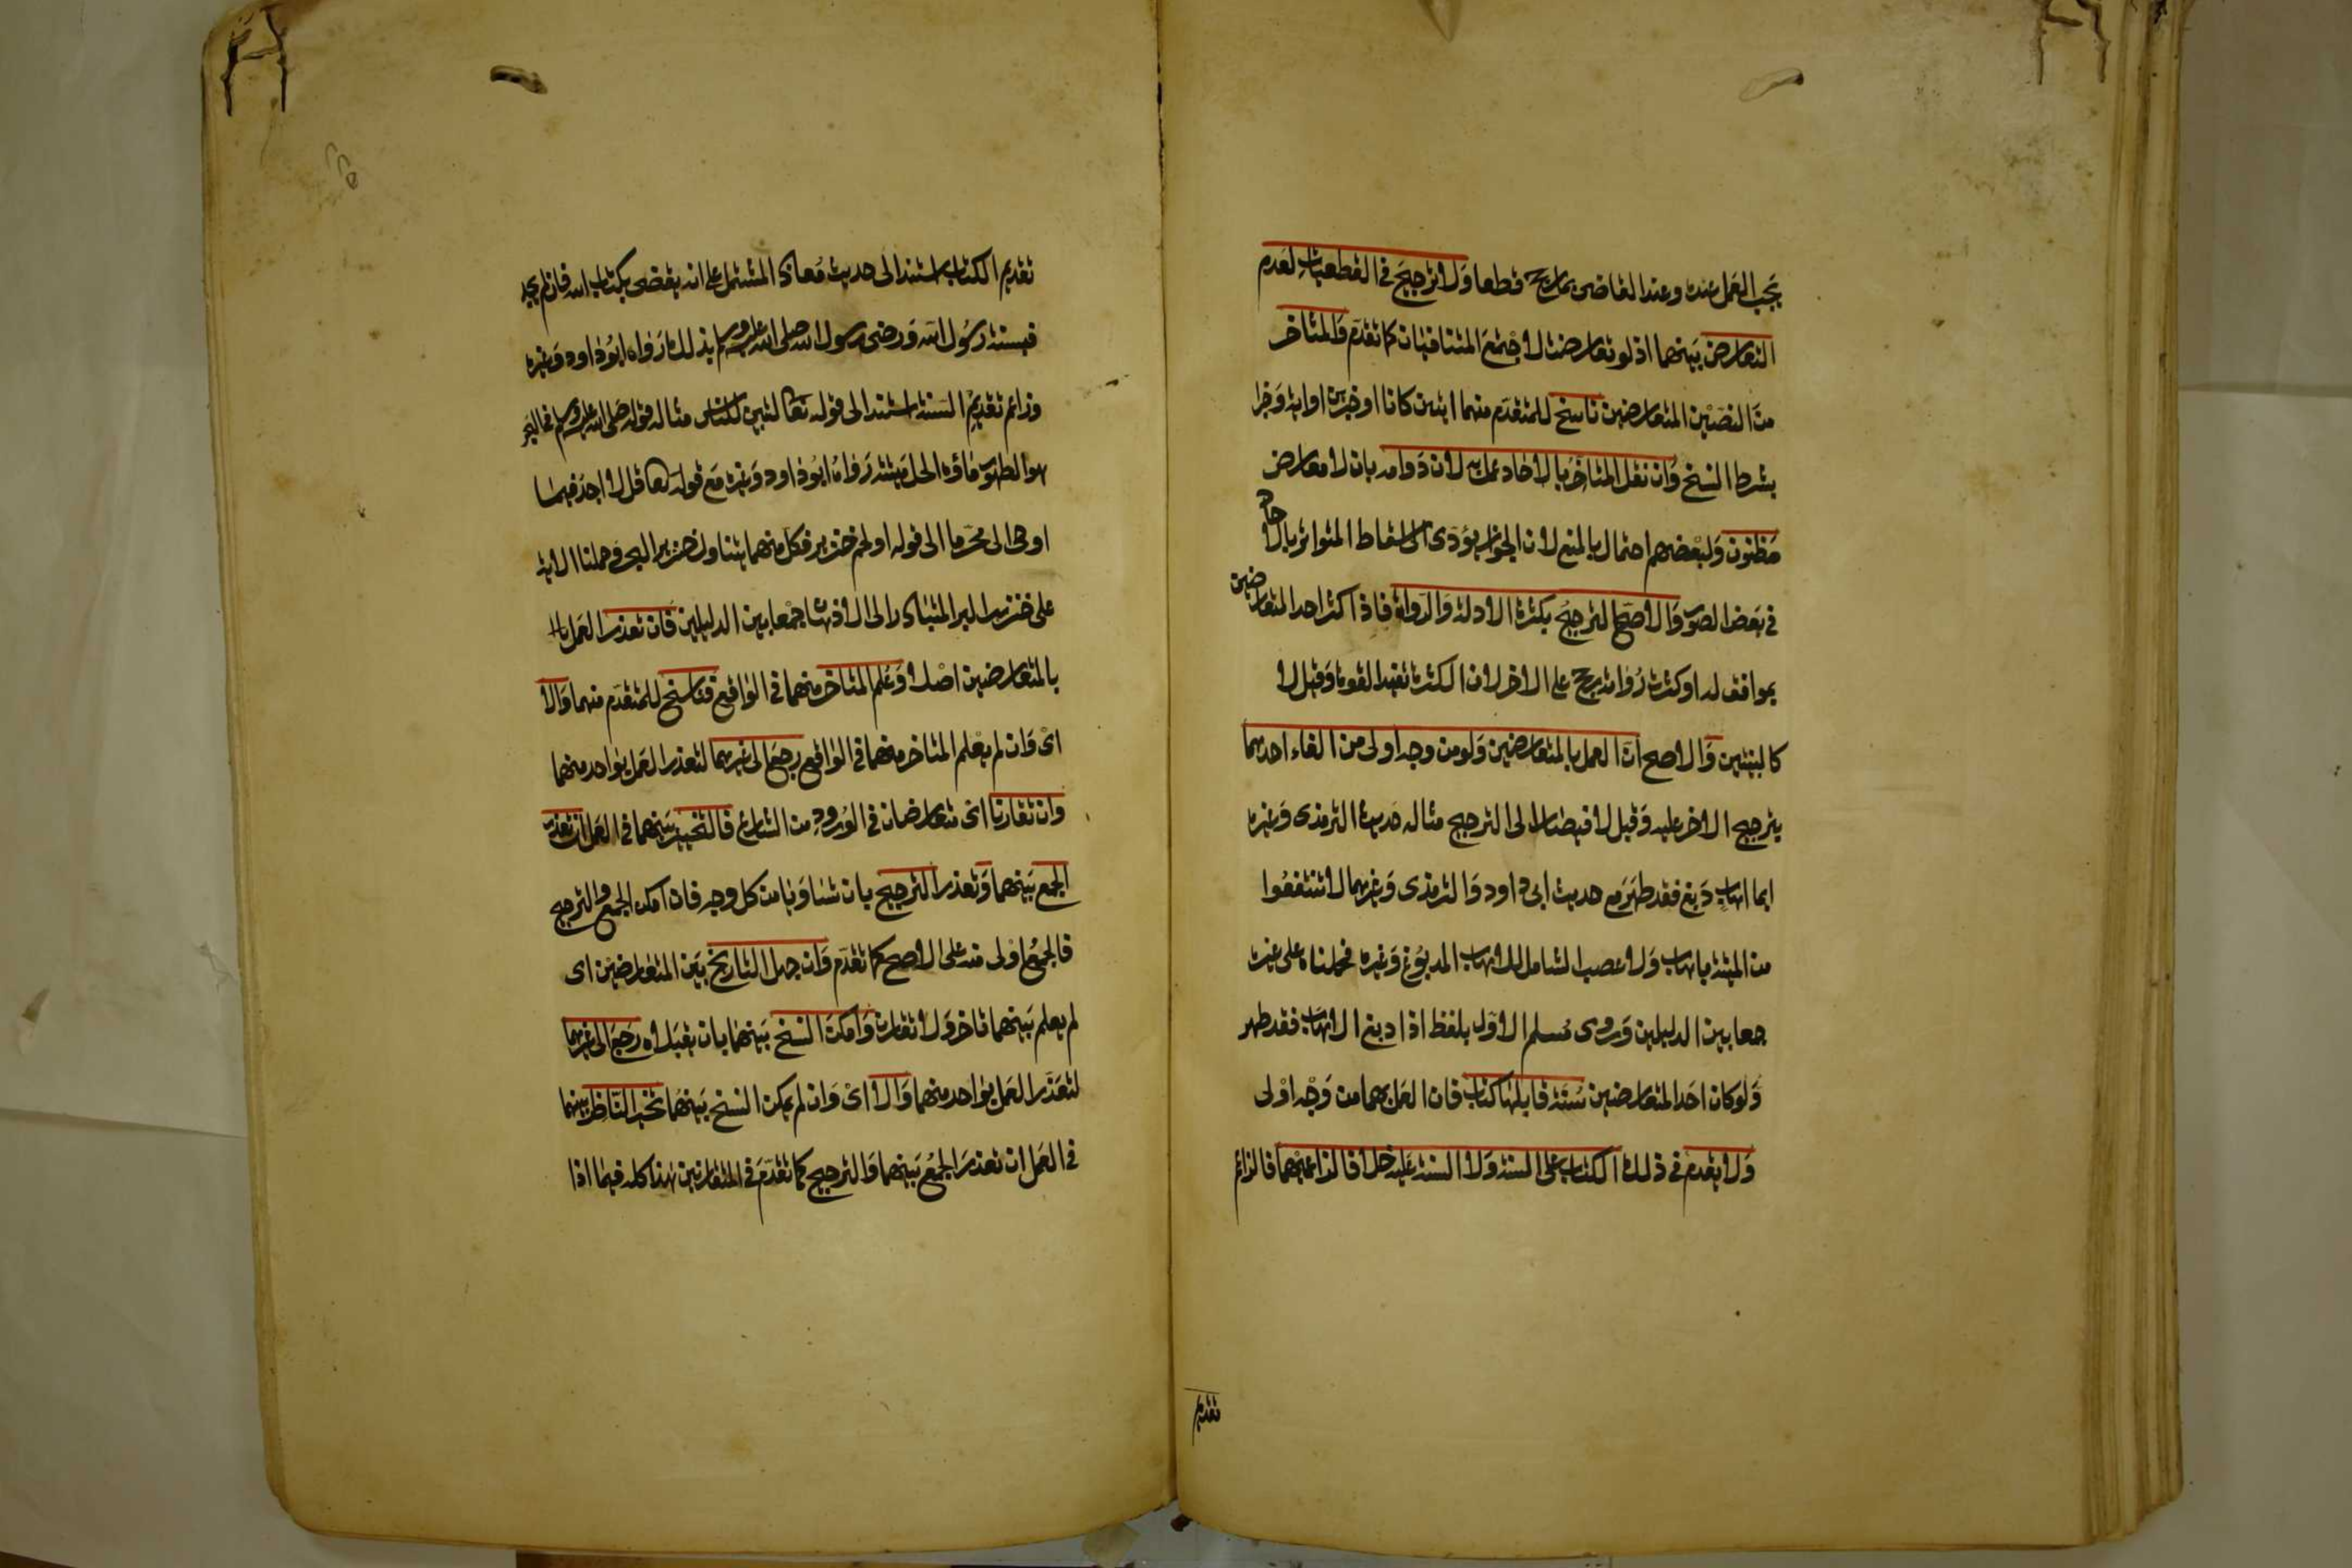 يجب العمل عنده وعند القاضى بما رجح قطعا ولا ترجيح فى القطعيات لعدم
التعارض بينهما اذ لو تعارضت لاجتمع المتنافيان كما تقدم والمتاخر
من النصين المتعارضين ناسخ للمتقدم منهما ايتين كانا او خبرين او اية وخبرا
بشرط النسخ وان نقل المتاخر بالاحاد عمل به لان دوامه بان لا معارض
مظنون ولبعضهم احتمال بالمنع لان الجواز يؤدى الى اسقاط المتواتر بالاحاد
فى بعض الصور والاصح الترجيح بكثرة الادلة والرواة فاذا كثر احد المتعارضين
بموافق له او كثرت رواته رجح على الاخر لان الكثرة تفيد القوة وقيل لا
كالبينتين والاصح ان العمل بالمتعارضين ولو من وجه اولى من الغاء احدهما
بترجيح الاخر عليه وقيل لا فيصار الى الترجيح مثاله حديث الترمذى وغيره
ايما اهاب دبغ فقد طهر مع حديث ابى داود والترمذى وغيرهما لا تنتفعوا
من الميتة باهاب ولا عصب الشامل للاهاب المدبوغ وغيره فحملناه على غيره
جمعا بين الدليلين وروى مسلم الاول بلفظ اذا دبغ الاهاب فقد طهر
ولو كان احد المتعارضين سنة قابلها كتاب فان العمل بهما من وجه اولى
ولا يقدم فى ذلك الكتاب على السنة ولا السنة عليه خلافا لزاعميهما فالزاعم
تقديم
تقديم الكتاب استند الى حديث معاذ المشتمل على انه يقضى بكتاب الله فان لم يجد
فبسنة رسول الله ورضى رسول الله صلى الله عليه وسلم بذلك رواه ابو داود وغيره
وزاعم تقديم السنة استند الى قوله تعا لتبين للناس مثاله قوله صلى الله عليه وسلم فى البحر
هو الطهور ماؤه الحل ميتته رواه ابو داود وغيره مع قوله تعا قل لا اجد فيما
اوحى الى محرما الى قوله او لحم خنزير فكل منهما يتناول خنزير البحر وحملنا الاية
على خنزير البر المتبادر الى الاذهان جمعا بين الدليلين فان تعذر العمل
بالمتعارضين اصلا وعلم المتاخر منهما فى الواقع فناسخ للمتقدم منهما والا
اى وان لم يعلم المتاخر منهما فى الواقع رجع الى غيرهما لتعذر العمل بواحد منهما
وان تقارنا اى متعارضان فى الورود من الشارع فالتخيير بينهما فى العمل ان تعذر
الجمع بينهما وتعذر الترجيح بان تساويا من كل وجه فان امكن الجمع والترجيح
فالجمع اولى منه على الاصح كما تقدم وان جهل التاريخ بين المتعارضين اى
لم يعلم بينهما تاخر ولا تقارن وامكن النسخ بينهما بان يقبلاه رجع الى غيرهما
لتعذر العمل بواحد منهما والا اى وان لم يمكن النسخ بينهما تخير الناظر بينهما
فى العمل ان تعذر الجمع بينهما والترجيح كما تقدم فى المتقارنين هذا كله فيما اذا